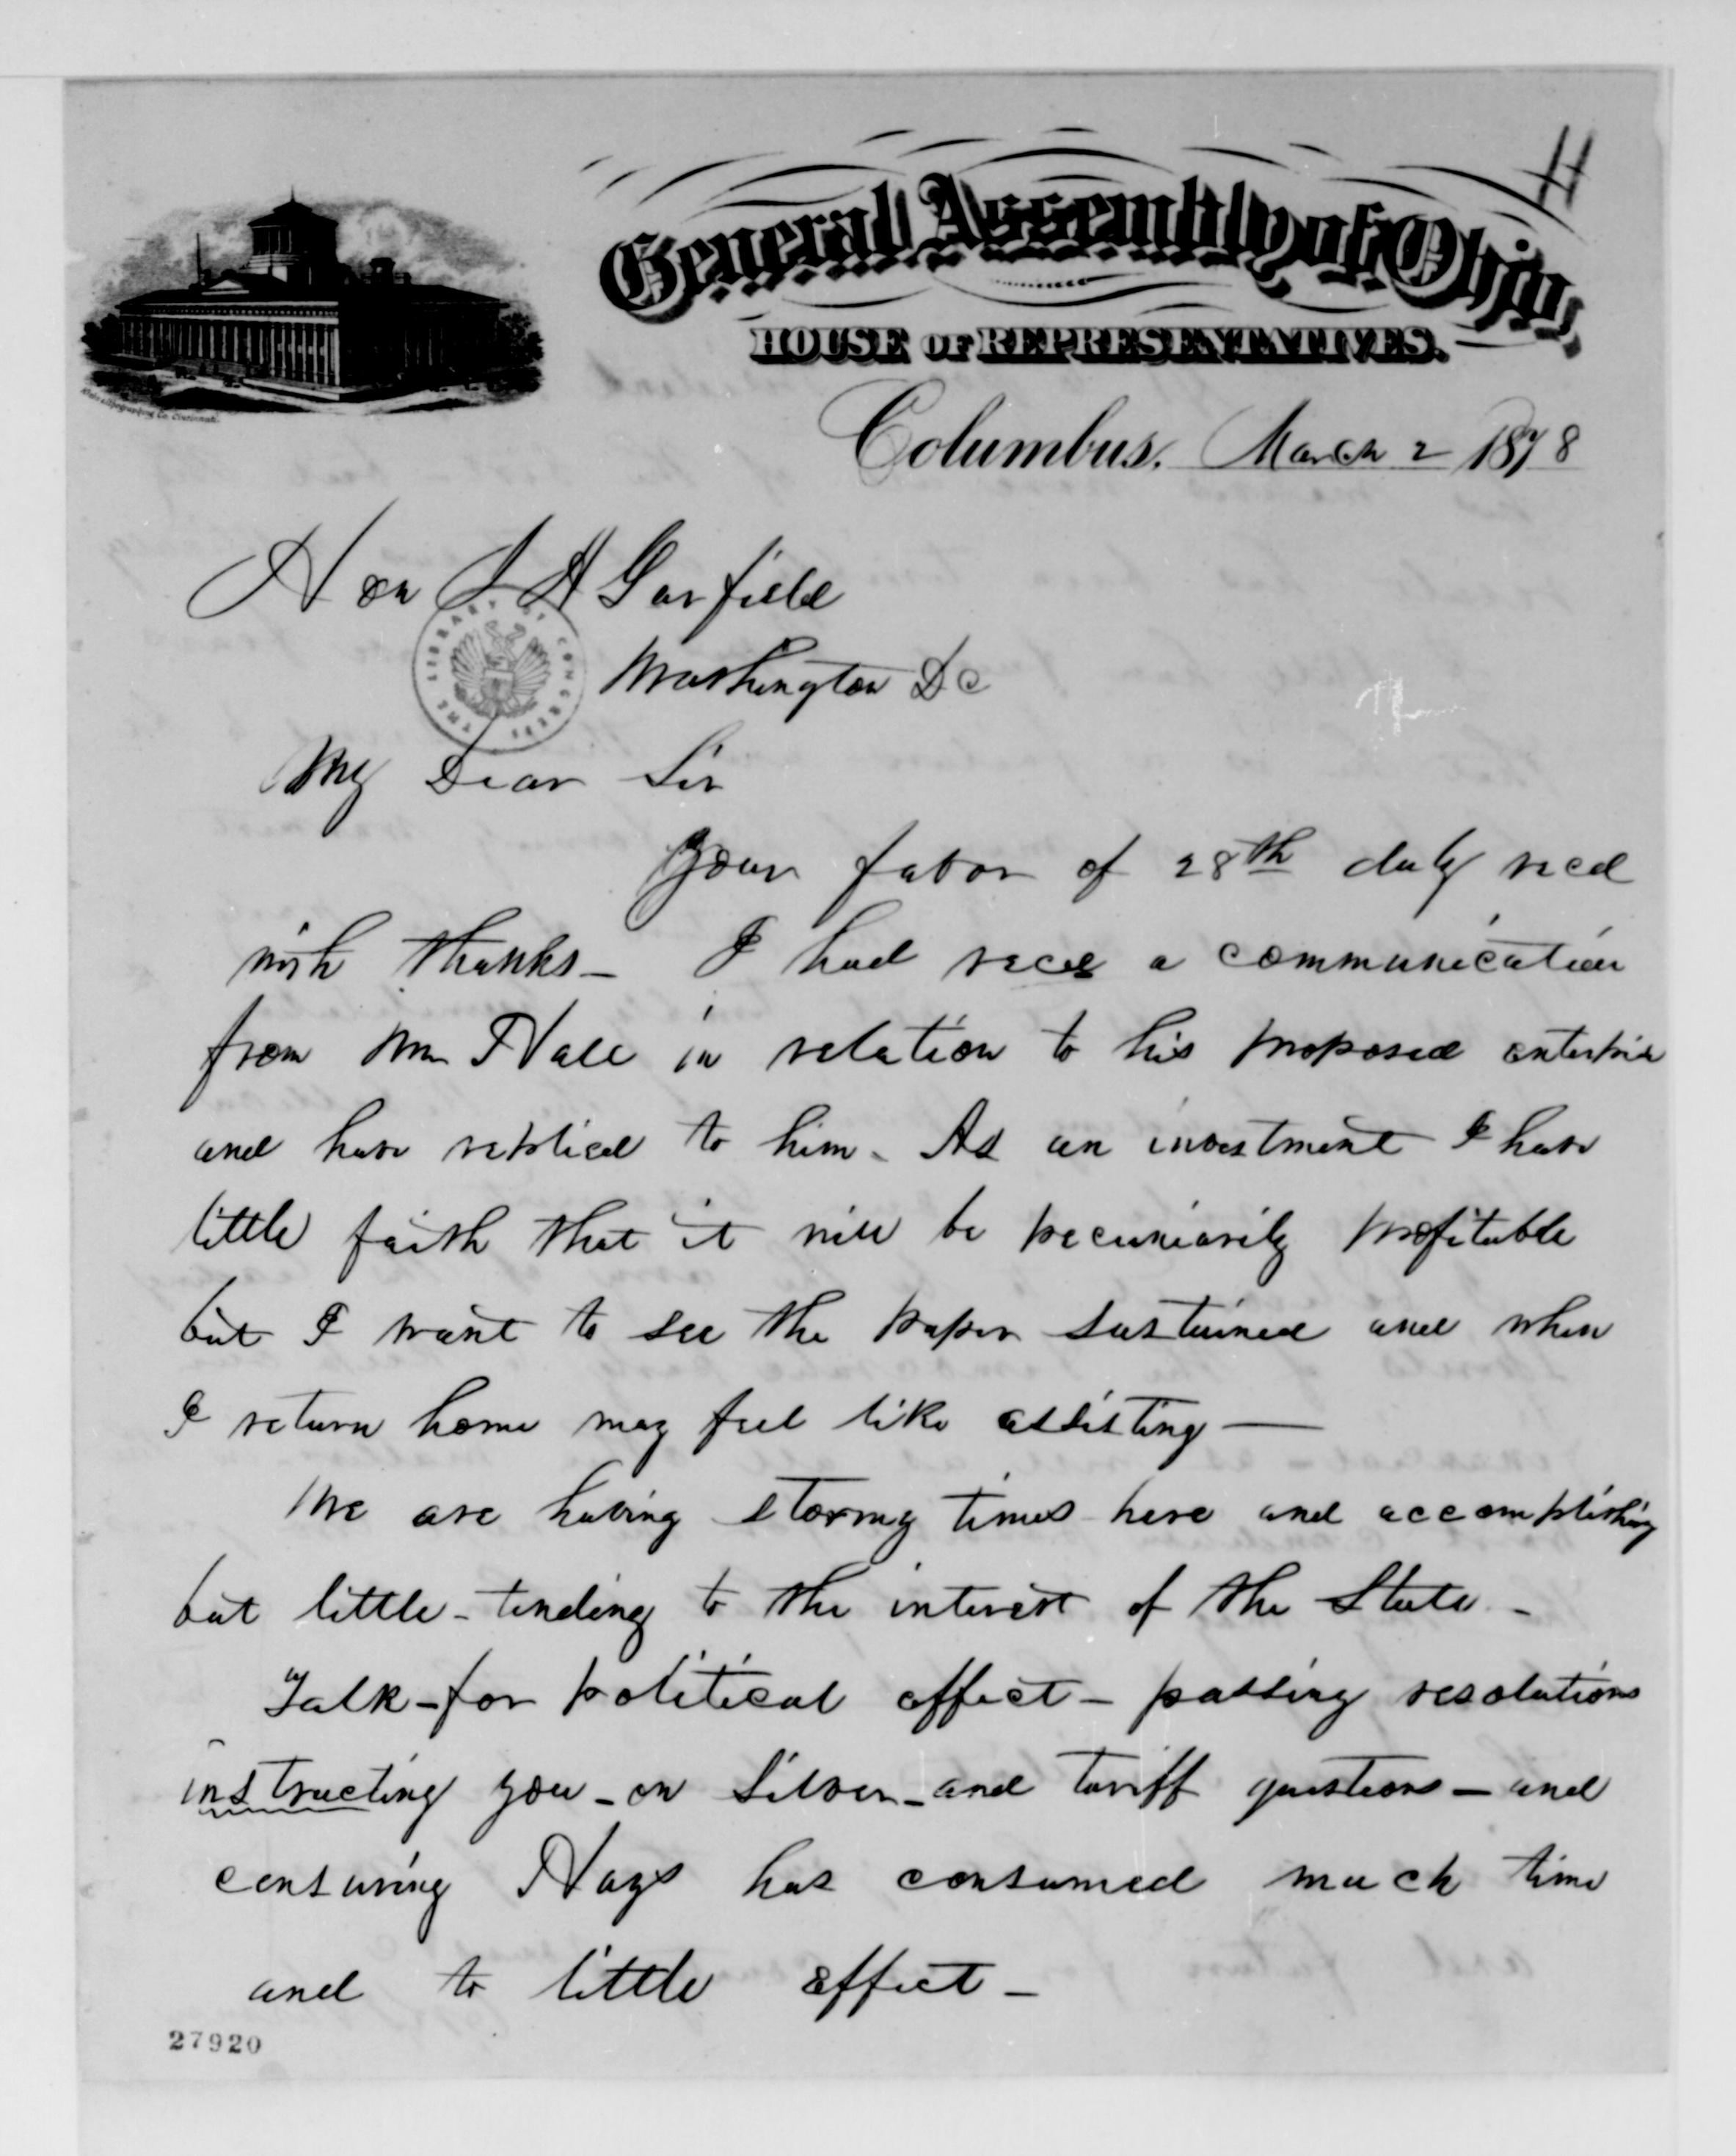 H
General Assembly of Ohio,
HOUSE OF REPRESENTATIVES.
Columbus, March 2 1878
Hon J H Garfield
Washington DC
THE LIBRARY OF CONGRESS
My Dear Sir
Your favor of 28th duly recd
with thanks - I had recd a communication
from Mr Hall in relation to his proposed enterprise
and have replied to him - As an investment I have
little faith that it will be pecuniarily profitable
but I want to see the paper sustained and when
I return home may feel like assisting —
We are having stormy times here and accomplishing
but little - tending to the interest of the State -
Talk - for political effect - passing resolutions
instructing you - on Silver - and tariff questions - and
censuring Hays has consumed much time
and to little effect -
27920